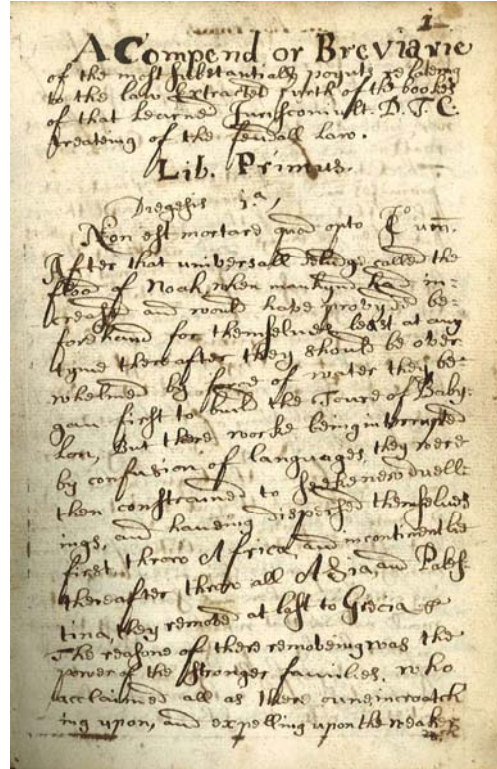 1
A Compend or Breviarie
of the most substantiall poynts relateing
to the law Extracted furth of the bookes
of that Learned Jurisconsult. D. T. C.
treateing of the feudall Law.
Lib. Primus.
Diegesis 1a,
Non est mortale quod opto
After that universall deludge called the
flood of Noah, when mankynd had in=
creased and would have provyded be=
forehand for themselves least at any
tyme thereafter they should be over=
whelmed by force of water they be=
gan first to build the Toure of Baby=
lon, But there worke being interrupted
by confusion of languages they were
then constrained to seeke new duell=
ings, and haveing dispersed themselves
first throw Africa and incontinentlie
thereafter throw all Asia, and Pales=
tina, they removed at last to Grecia
The reasone of there removeing was the
power of the stronger families, who
acclaimed all as there owne incroatch
ing upon, and expelling upon the weaker